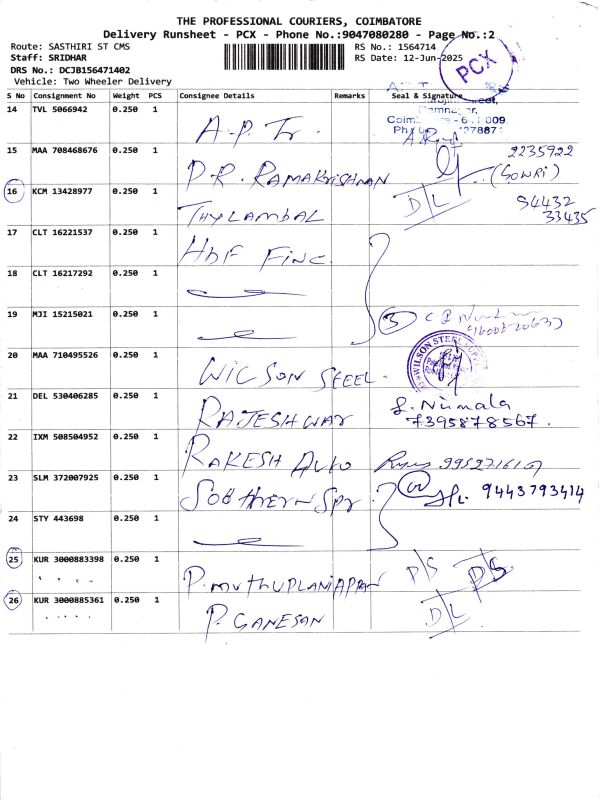 THE PROFESSIONAL COURIERS, COIMBATORE
Delivery Runsheet - PCX - Phone No.:9047080280 - Page No.:2
Route: SASTHIRI ST CMS
RS No.: 1564714
Staff: SRIDHAR
RS Date: 12-Jun-2025
DRS No.: DCJB156471402
Vehicle: Two Wheeler Delivery
PCX
S No Consignment No Weight PCS Consignee Details Remarks Seal & Signature
14 TVL 5066942 0.250 1 A.P. Tr.
15 MAA 708468676 0.250 1 P.R. RAMAKRISHNAN 2235922
(GOWRI)
16 KCM 13428977 0.250 1 THYLAMBAL D/L 94432
33435
17 CLT 16221537 0.250 1 HDF Finc.
18 CLT 16217292 0.250 1
19 MJI 15215021 0.250 1 3
20 MAA 710495526 0.250 1 WILSON STEEL. WILSON STEEL
21 DEL 530406285 0.250 1 RAJESHWAR S. Nirmala
7395878567.
22 IXM 508504952 0.250 1 RAKESH AUTO
23 SLM 372007925 0.250 1 SOUTHERN SPR 9443793414
24 STY 443698 0.250 1
25 KUR 3000883398 0.250 1 P. MUTHUPLANIAPPAN P/S P/S
26 KUR 3000885361 0.250 1 P. GANESAN D/L